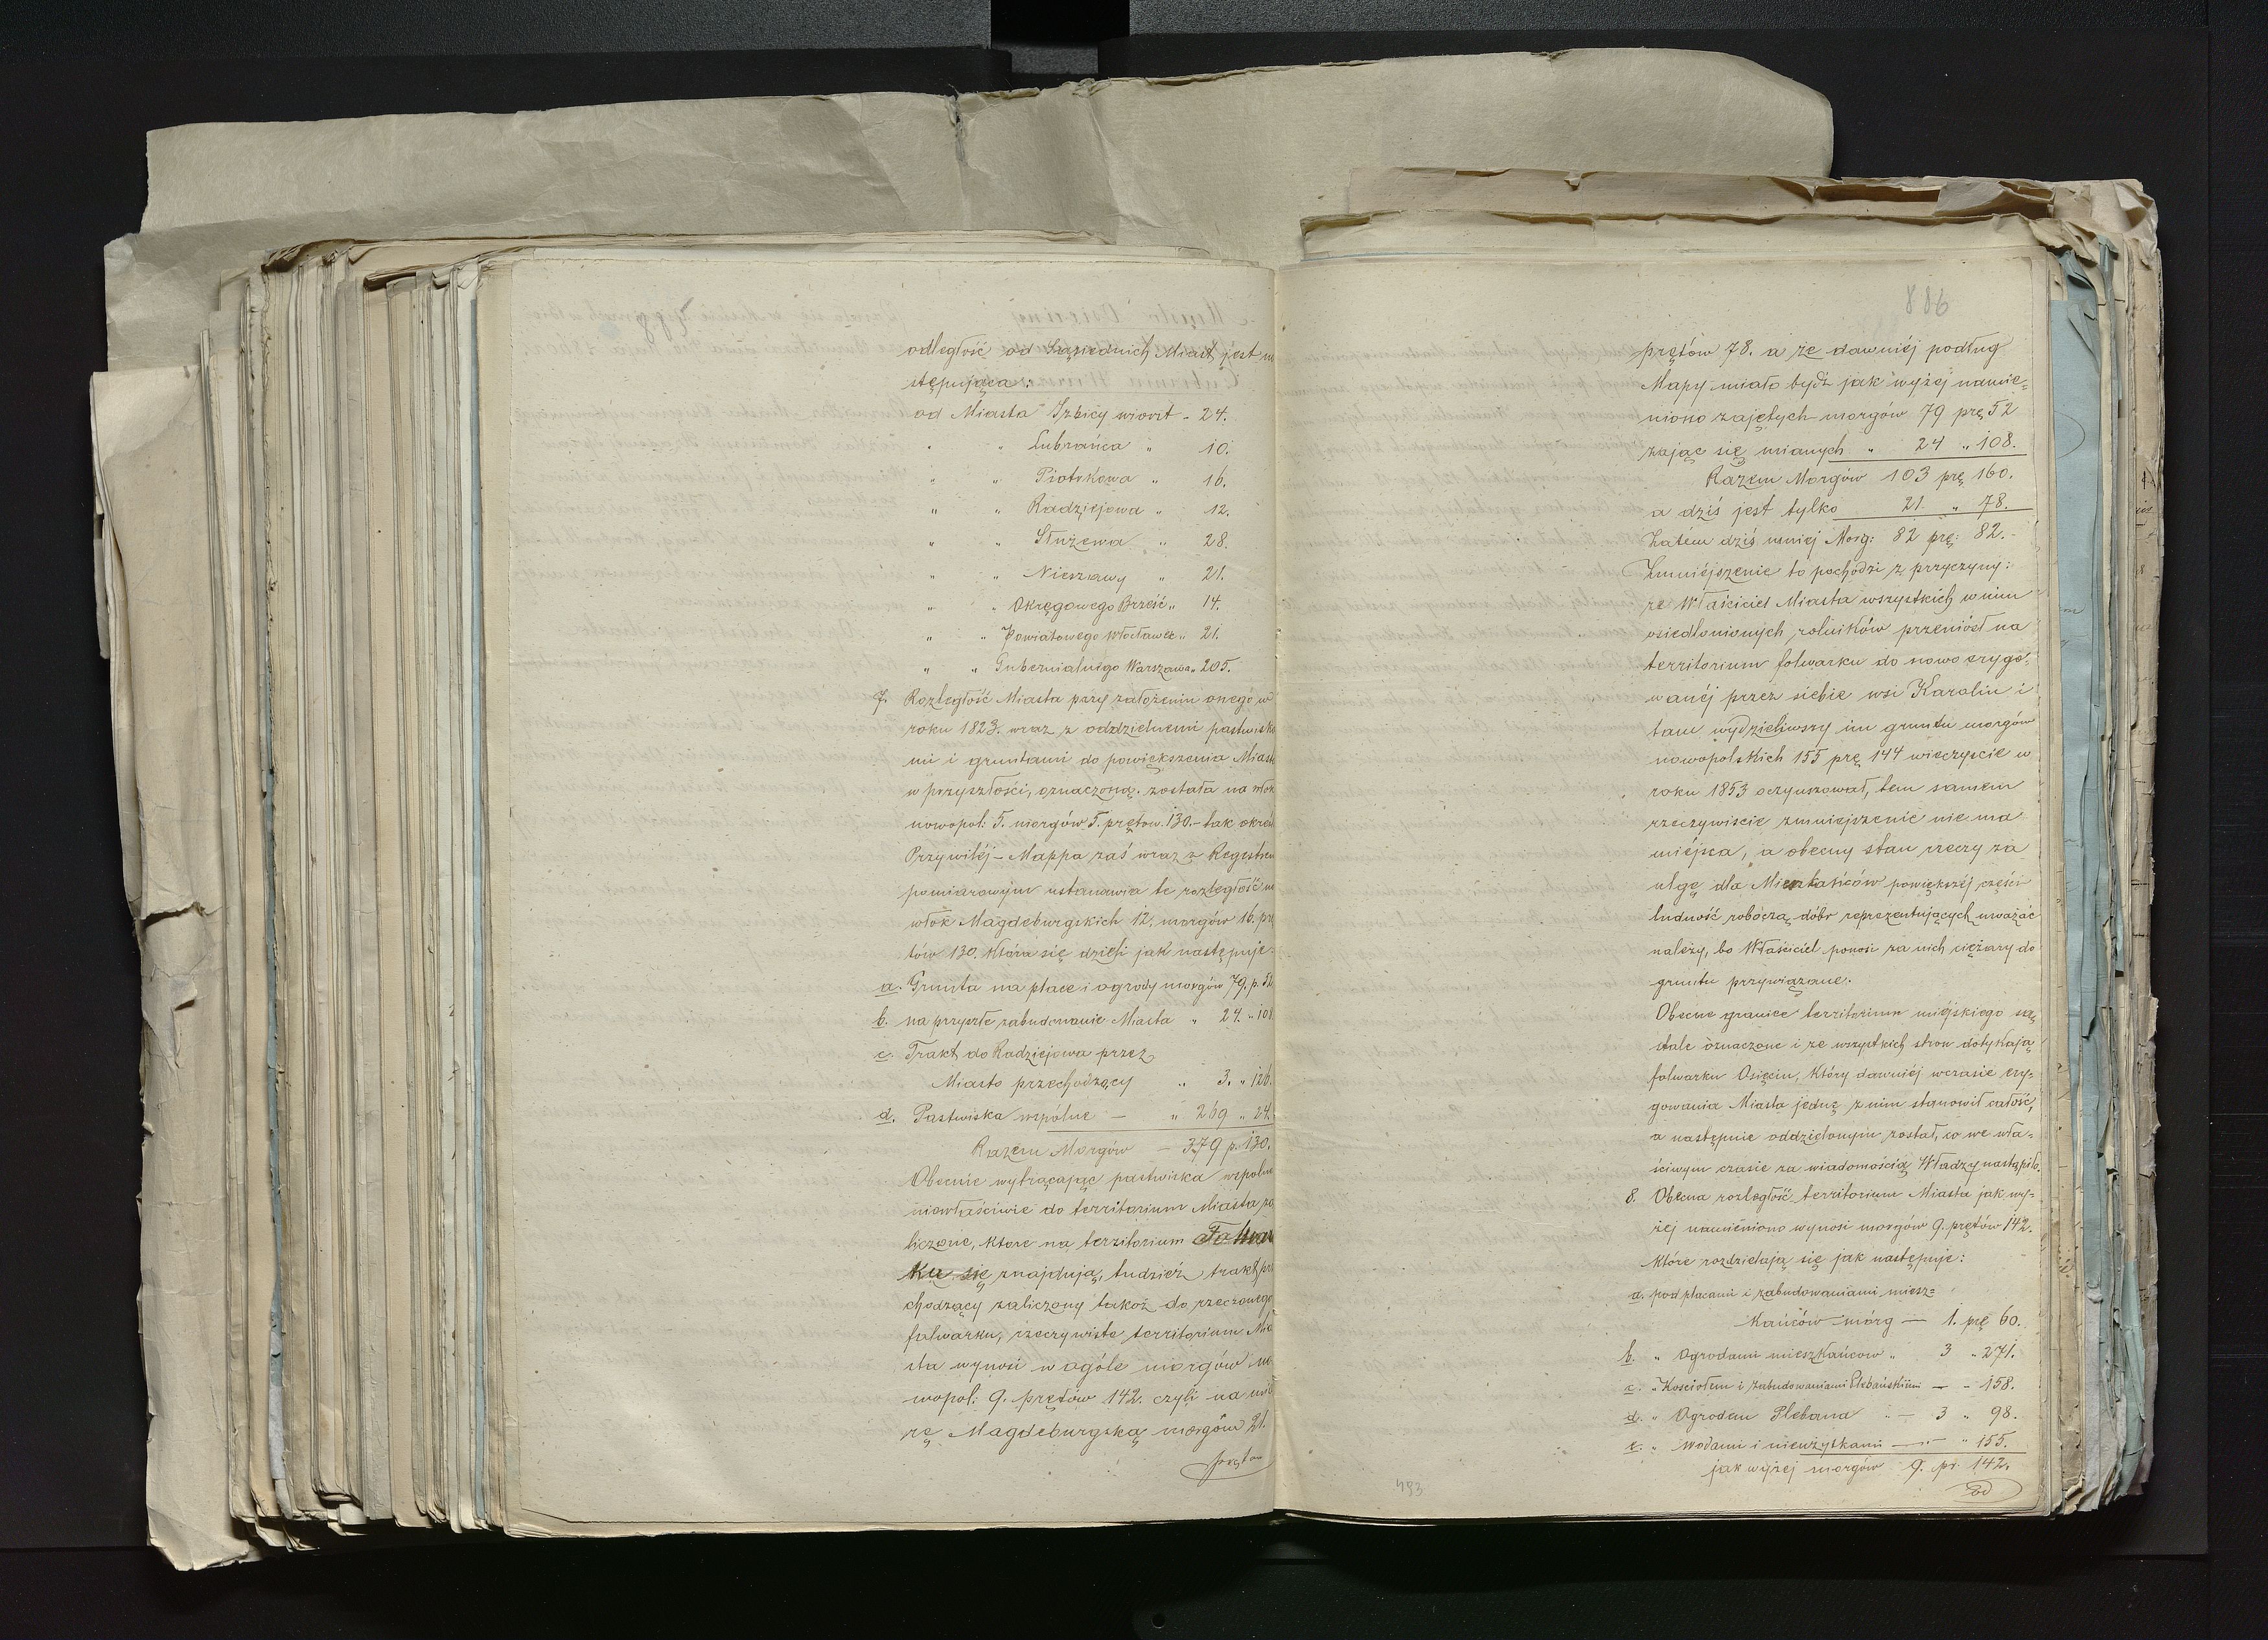 odległość od Sąsiednich Miast jest na
stępująca:
od Miasta Izbicy wiorst - 24.
" " Lubrańca " 10.
" " Piotrkowa " 16.
" " Radziejowa " 12.
" " Służewa " 28.
" " Nieszawy " 21.
" " Okręgowego Brześć " 14.
" " Powiatowego Włocławek " 21.
" " Gubernialnego Warszawa " 205.
7. Rozległość Miasta przy założeniu onego w
roku 1823. wraz z oddzielnemi pastwiska
mi i gruntami do powiększenia Miasta
w przyszłości, oznaczoną została na włok
nowopol: 5. morgów 5. prętow 130. – tak okreś
Przywiléj – Mappa zaś wraz z Regestrem
pomiarowym ustanawia tę rozległość na
włók Magdeburgskich 12, morgów 16. prę
tów 130. która się dzieli jak następuje:
a. Grunta na place i ogrody morgów 79. p. 52
b. na przyszłe zabudowanie Miasta " 24. " 108.
c. Trakt do Radziejowa przez
Miasto przechodzący " 3. " 126.
d. Pastwiska wspólne – " 269 " 24.
Razem Morgów – 379 p. 130.
Obecnie wytrącając pastwiska wspolne
niewłaściwie do territorium Miasta za
liczone, ktore na territorium Folwar
ku się znajdują, tudzież trakt prze
chodzący zaliczony takoż do rzeczonego
folwarku, rzeczywiste territorium Mia
sta wynosi w ogóle morgów no
wopol: 9. prętów 142. czyli na mia
rę Magdeburgską morgów 21.
prętów
886
prętów 78. a że dawniéj podług
Mapy miało bydź jak wyżéj namie=
niono zajętych morgów 79 prę 52
zająć się mianych " 24 " 108.
Razem Morgów 103 prę 160.
a dziś jest tylko 21. " 78.
Zatém dziś mniej Morg: 82 prę: 82.
Zmniéjszenie to pochodzi z przyczyny:
że Właściciel Miasta wszystkich w nim
osiedlonionych rolników przeniósł na
territorium folwarku do nowo erygo=
wanéj przez siebie wsi Karolin i
tam wydzieliwszy im gruntu morgów
nowopolskich 155 prę 144 wieczyscie w
roku 1853 oczynszował, tem samem
rzeczywiscie zmniejszenie nie ma
miéjsca, a obecny stan rzeczy za
ulgę dla Mieszkańców powiększéj części
ludność roboczą dóbr reprezentujących uważać
należy, bo Właściciel ponosi za nich ciężary do
gruntu przywiązane.
Obecne granice territorium miéjskiego są
stale oznaczone i ze wszystkich stron dotykają
folwarku Osięcin, który dawniéj wczasie ery=
gowania Miasta jednę z nim stanowił całość,
a następnie oddzielonym został, co we wła=
ściwym czasie za wiadomością Władzy nastąpiło.
8. Obecna rozległość territorium Miasta jak wy=
żej namieniono wynosi morgów 9. prętów 142.
które rozdzielają się jak następuje:
a. pod placami i zabudowaniami miesz=
kańców mórg – 1. prę 60.
b. " Ogrodami mieszkańcow " 3 " 271.
c. " Kosciołem i zabudowaniami Plebańskiemi – - 158.
d. " Ogrodem Plebana " – 3 " 98.
e. " Wodami i nieużytkami – " – " 155.
jak wyżej morgów 9. pr. 142.
Od
493